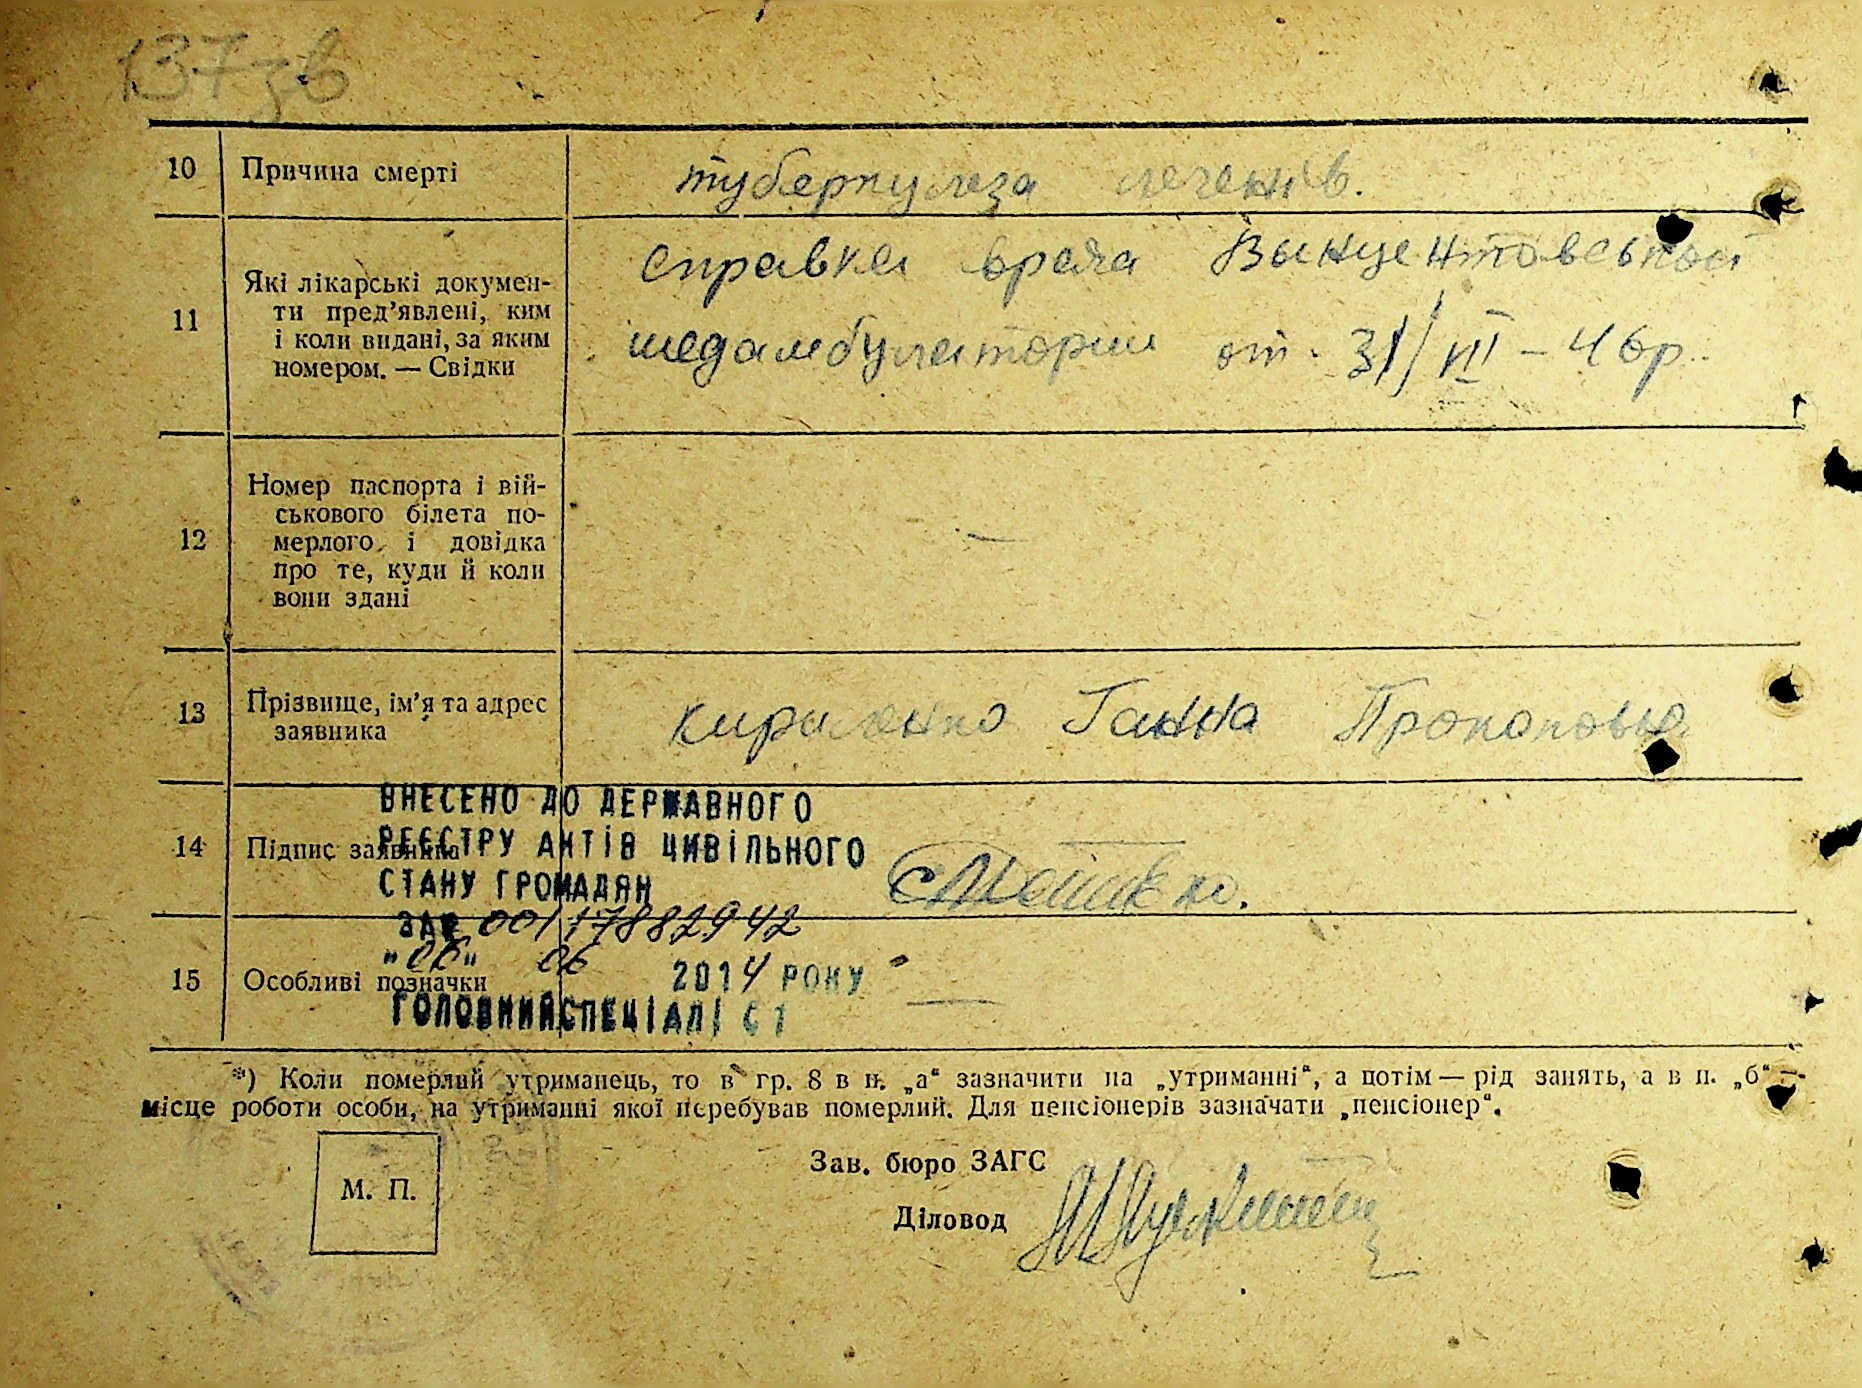 137зв
10 Причина смерті туберкулеза легенів.
11 Які лікарські докумен-
ти пред'явлені, ким
і коли видані, за яким
номером. — Свідки
справка врача Вынцентовською
медамбулатории от 31/VII – 46р.
12 Номер паспорта і вій-
ськового білета по-
мерлого і довідка
про те, куди й коли
вони здані
—
13 Прізвище, ім'я та адрес
заявника
Кириленко Ганна Прокоповна
14 Підпис заявника
ВНЕСЕНО ДО ДЕРЖАВНОГО
РЕЄСТРУ АКТІВ ЦИВІЛЬНОГО
СТАНУ ГРОМАДЯН
ЗА № 00117882942
"06" 06 2014 РОКУ
15 Особливі позначки —
ГОЛОВНИЙ СПЕЦІАЛІСТ
*) Коли померлий утриманець, то в гр. 8 в п. „а“ зазначити на „утриманні“, а потім — рід занять, а в п. „б“ —
місце роботи особи, на утриманні якої перебував померлий. Для пенсіонерів зазначати „пенсіонер“.
М. П.
Зав. бюро ЗАГС
Діловод